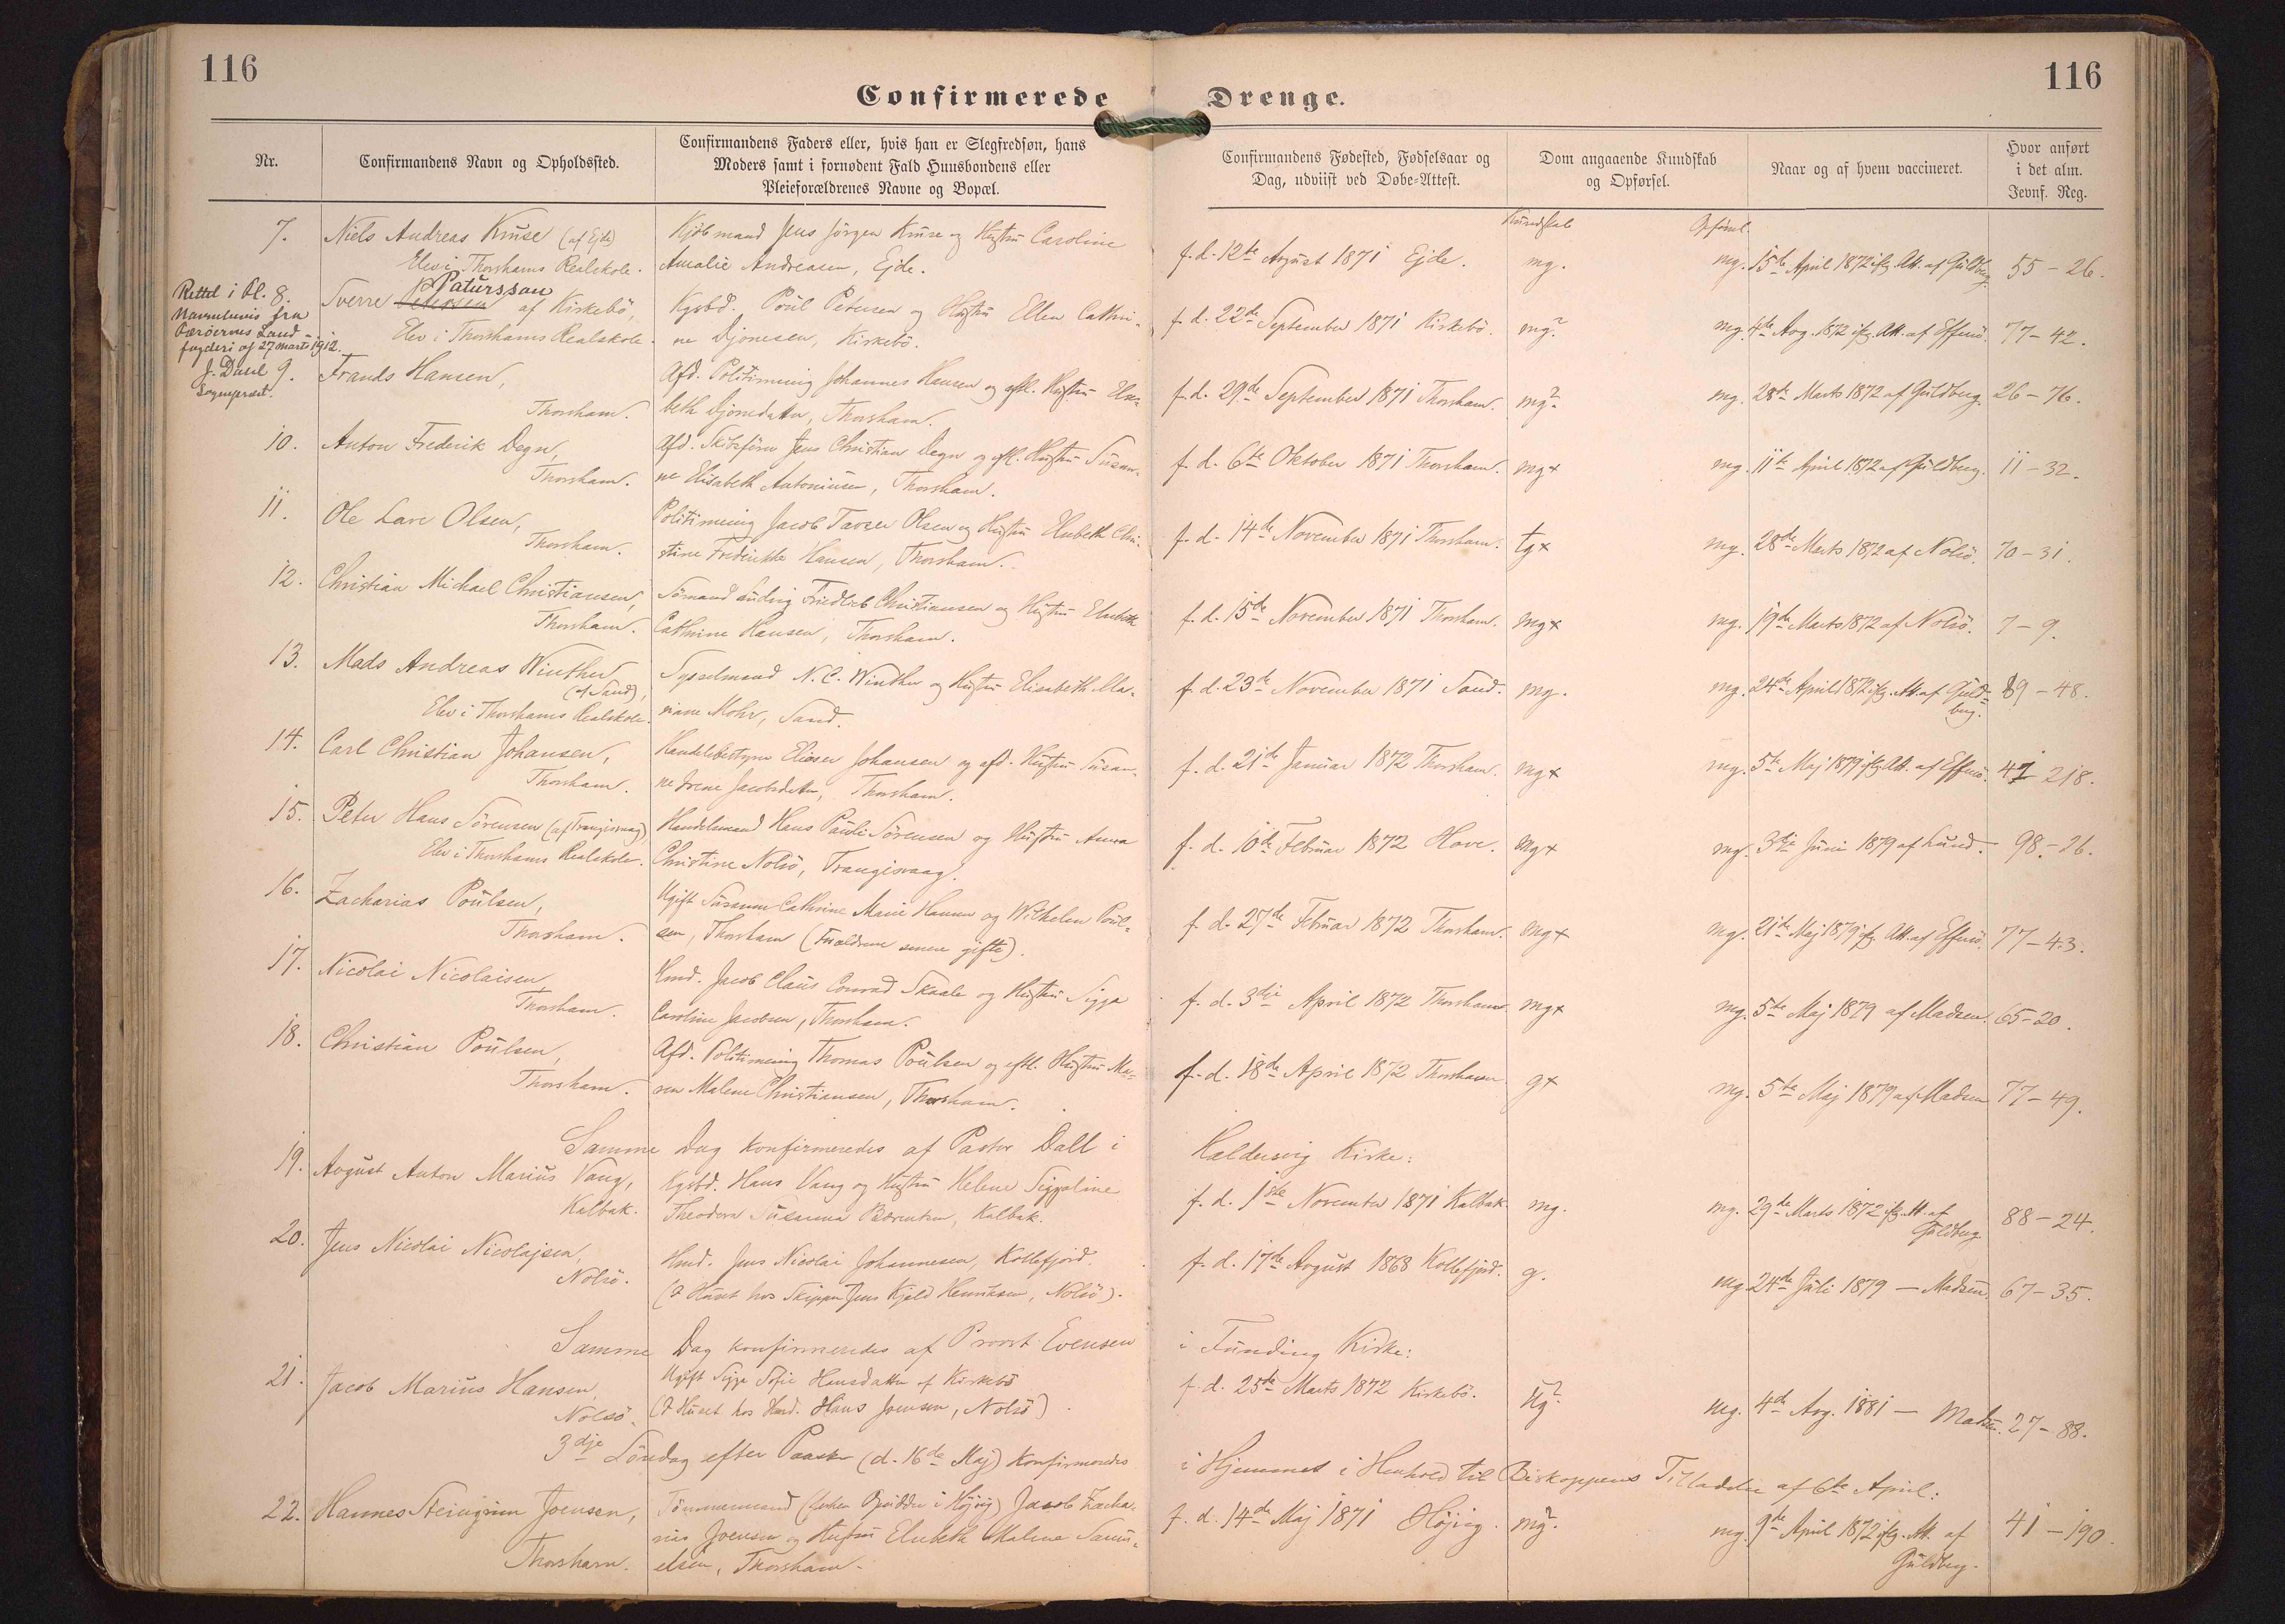 116
116
Confirmerede Drenge.
Nr.
Confirmandens Navn og Opholdssted.
Confirmandens Faders eller, hvis han er Slegfredsøn, hans
Moders samt i fornødent Fald Huusbondens eller
Pleieforældrenes Navne og Bopæl.
Confirmandens Fødested, Fødselsaar og
Dag, udviist ved Døbe-Attest.
Dom angaaende Kundskab
og Opførsel.
Naar og af hvem vaccineret.
Hvor anført
i det alm.
Jevnf. Reg.
Kundskab Opførsel
7. Niels Andreas Kruse (af Ejde) Kjøbmand Jens Jørgen Kruse og Hustru Caroline f. d. 12te August 1871 Ejde. mg. mg. 15de April 1872 ifg. Att. af Guldberg 55-26.
Elev i Thorshavns Realskole. Amalie Andreasen, Ejde.
Rettet i Hl.
Navnebevis fra
Færøernes Land-
fogderi af 27 Marts 1912.
Sognepræst.
Patursson
8. Sverre Petersen af Kirkebø, Kgsbd. Poul Petersen og Hustru Ellen Cathri- f. d. 22de September 1871 Kirkebø. mg? mg. 4de Avg. 1872 ifg. Att. af Effersø. 77-42.
Elev i Thorshavns Realskole. ne Djonesen, Kirkebø.
9. Frands Hansen, Afd. Politimening Johannes Hansen og eftl. Hustru Else- f. d. 29de September 1871 Thorshavn. mg? mg. 28de Marts 1872 af Guldberg. 26-76.
Thorshavn. beth Djonedatter, Thorshavn.
10. Anton Frederik Degn, Afd. Skibsfører Jens Christian Degn og eftl. Hustru Susan- f. d. 6te Oktober 1871 Thorshavn. mg+ mg. 11te April 1872 af Guldberg. 11-32.
Thorshavn. ne Elisabeth Antoniusen, Thorshavn.
11. Ole Lare Olsen, Politimening Jacob Olsen og Hustru Elsebeth Chri- f. d. 14de November 1871 Thorshavn. tg+ mg. 28de Marts 1872 af Nolsø. 70-31.
Thorshavn. stine Frederikke Hansen, Thorshavn.
12. Christian Michael Christiansen, Sømand Ludvig Friedlieb Christiansen og Hustru Elsebeth f. d. 15de November 1871 Thorshavn. mg+ mg. 19de Marts 1872 af Nolsø. 7-9.
Thorshavn. Cathrine Hansen, Thorshavn.
13. Mads Andreas Winther Sysselmand N. C. Winther og Hustru Elisabeth Ma- f. d. 23de November 1871 Sand. mg. mg. 24de April 1872 ifg. Att. af Guld- 89-48.
(af Sand),
Elev i Thorshavns Realskole. riane Mohr, Sand. berg.
14. Carl Christian Johansen, Handelsbestyrer Elieser Johansen og afd. Hustru Susan- f. d. 21de Januar 1872 Thorshavn. mg+ mg. 5te Maj 1879 ifg. Att. af Effersø. 41 218.
Thorshavn. ne Irene Jacobsdatter, Thorshavn.
15. Peter Hans Sørensen (af Trangisvaag) Handelsmand Hans Pauli Sørensen og Hustru Anna f. d. 10de Februar 1872 Hove. mg+ mg. 3dje Juni 1879 af Lund. 98-26.
Elev i Thorshavns Realskole. Christine Nolsø, Trangisvaag.
16. Zacharias Poulsen, Ugift Susanne Cathrine Marie Hansen og Wilhelm Poul- f. d. 27de Februar 1872 Thorshavn. mg+ mg. 21de Maj 1879 ifg. Att. af Effersø. 77-43.
Thorshavn. sen, Thorshavn (Forældrene senere gifte).
17. Nicolai Nicolaisen Hmd. Jacob Claus Conrad Skaale og Hustru Sigga f. d. 3dje April 1872 Thorshavn. mg+ mg. 5te Maj 1879 af Madsen. 65-20.
Thorshavn. Caroline Jacobsen, Thorshavn.
18. Christian Poulsen, Afd. Politimening Thomas Poulsen og eftl. Hustru Ma- f. d. 18de April 1872 Thorshavn. g+ mg. 5te Maj 1879 af Madsen 77-49.
Thorshavn. ren Malene Christiansen, Thorshavn.
Samme Dag konfirmeredes af Pastor Dall i Haldersvig Kirke:
19. Avgust Anton Marius Vang, Kgsbd. Hans Vang og Hustru Helene Siggaline f. d. 1ste November 1871 Kalbak. mg. mg. 29de Marts 1872 ifg. Att. af 88-24.
Kalbak. Theodora Susanna Bærentsen, Kalbak. Guldberg.
20. Jens Nicolai Nicolajsen, Hmd. Jens Nicolai Johannesen, Kollefjord. f. d. 17de August 1868 Kollefjord. g. mg. 24de Juli 1879 — Madsen. 67-35.
Nolsø. (I Huset hos Skipper Jens Kjeld Henriksen, Nolsø).
Samme Dag konfirmeredes af Provst Evensen i Funding Kirke:
21. Jacob Marius Hansen, Ugift Sigga Sofie Hansdatter af Kirkebø f. d. 25de Marts 1872 Kirkebø. ug? mg. 4de Avg. 1881 — Madsen. 27-88.
Nolsø. (I Huset hos Hmd. Hans Joensen, Nolsø).
3dje Søndag efter Paaske (d. 16de Maj) konfirmeredes i Hjemmet i Henhold til Biskoppens Tilladelse af 6te April:
22. Hannes Steingrim Joensen, Tømmermand (i Højvig) Jacob Zacha- f. d. 14de Maj 1871 Højvig. mg? mg. 9de April 1872 ifg. Att. af 41-190.
rias Joensen og Hustru Elsebeth Malene Samu- Guldberg.
Thorshavn. elsen, Thorshavn.